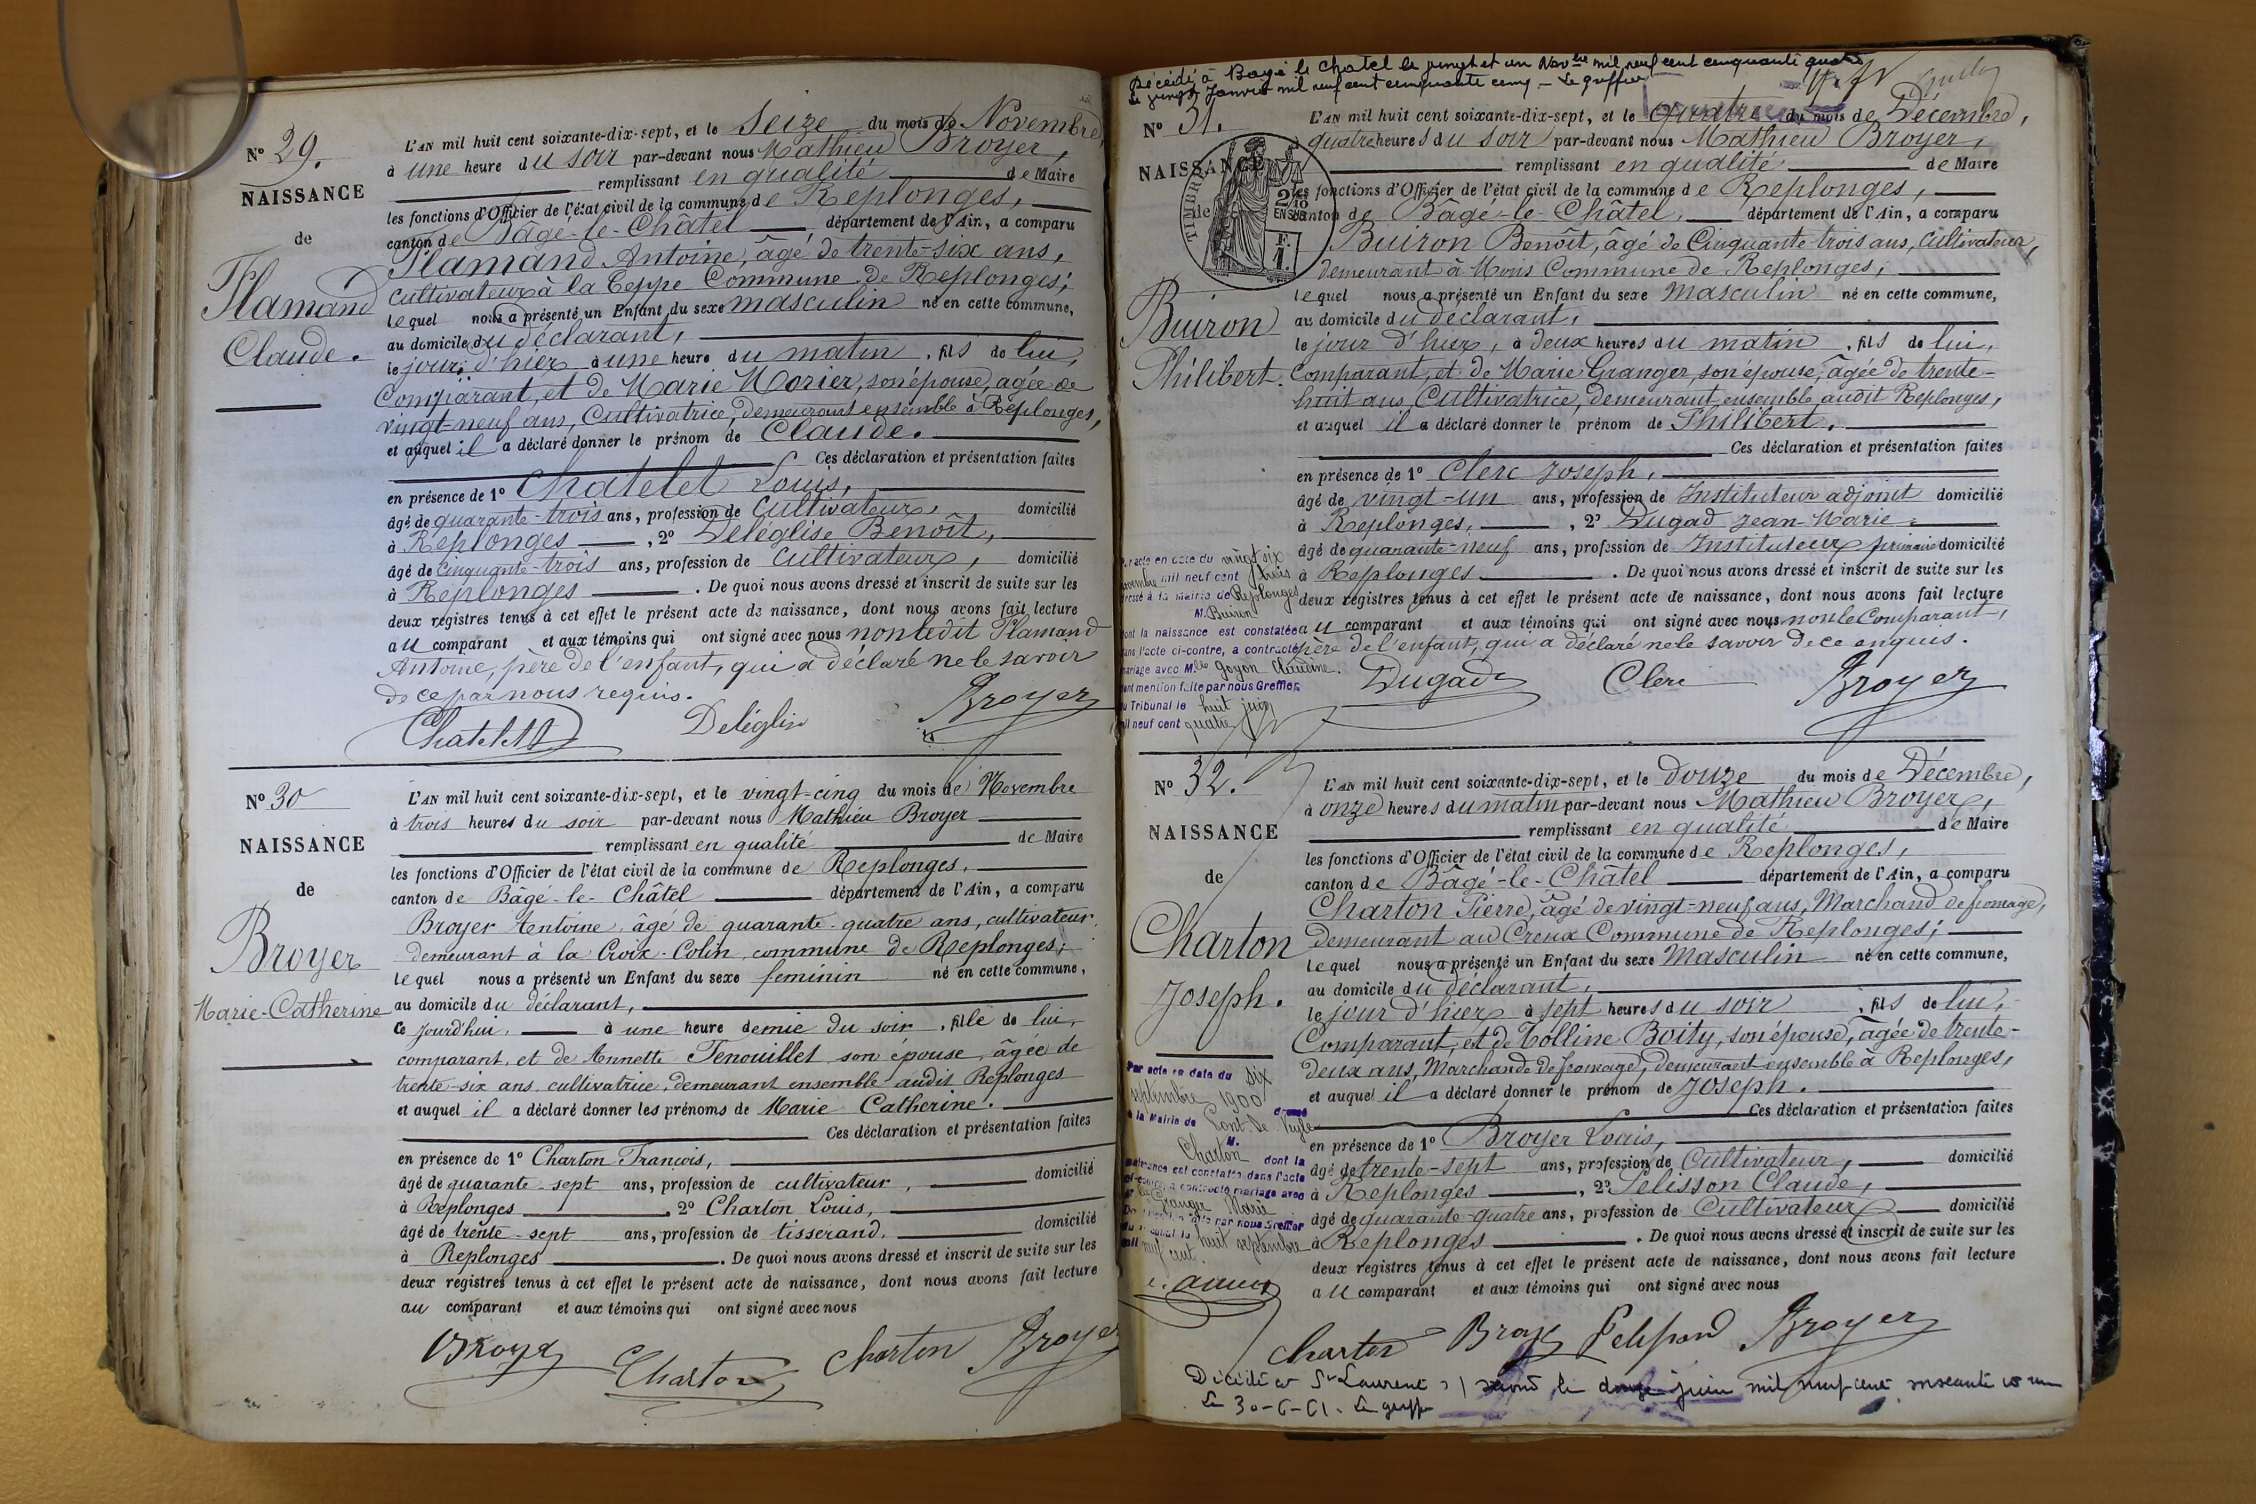 N° 29.
NAISSANCE
de
Flamand
Claude.
L'AN mil huit cent soixante-dix-sept, et le Seize du mois de Novembre,
à une heure du soir par-devant nous Mathieu Broyer,
remplissant en qualité de Maire
les fonctions d'Officier de l'état civil de la commune de Replonges,
canton de Bâgé-le-Châtel département de l'Ain, a comparu
Flamand Antoine, âgé de trente-six ans,
cultivateur à la Teppe Commune de Replonges;
lequel nous a présenté un Enfant du sexe masculin né en cette commune,
au domicile du déclarant,
le jour d'hier à une heure du matin, fils de lui,
Comparant, et de Marie Morier, son épouse, âgée de
vingt-neuf ans, Cultivatrice, demeurant ensemble à Replonges,
et auquel il a déclaré donner le prénom de Claude.
Ces déclaration et présentation faites
en présence de 1° Chatelet Louis,
âgé de quarante-trois ans, profession de Cultivateur, domicilié
à Replonges, 2° Deléglise Benoît,
âgé de cinquante-trois ans, profession de cultivateur, domicilié
à Replonges. De quoi nous avons dressé et inscrit de suite sur les
deux registres tenus à cet effet le présent acte de naissance, dont nous avons fait lecture
au comparant et aux témoins qui ont signé avec nous non ledit Flamand
Antoine, père de l'enfant, qui a déclaré ne le savoir
de ce par nous requis.
Chatelet Deléglise Broyer
N° 30
NAISSANCE
de
Broyer
Marie-Catherine
L'AN mil huit cent soixante-dix-sept, et le vingt-cinq du mois de Novembre
à trois heures du soir par-devant nous Mathieu Broyer
remplissant en qualité de Maire
les fonctions d'Officier de l'état civil de la commune de Replonges,
canton de Bâgé-le-Châtel département de l'Ain, a comparu
Broyer Antoine, âgé de quarante-quatre ans, cultivateur,
demeurant à la Croix-Colin, commune de Replonges;
lequel nous a présenté un Enfant du sexe feminin né en cette commune,
au domicile du déclarant,
ce jourd'hui, à une heure demie du soir, fille de lui,
comparant, et de Annette Fenouillet son épouse, âgée de
trente-six ans, cultivatrice, demeurant ensemble audit Replonges
et auquel il a déclaré donner les prénoms de Marie Catherine.
Ces déclaration et présentation faites
en présence de 1° Charton François,
âgé de quarante-sept ans, profession de cultivateur, domicilié
à Replonges, 2° Charton Louis,
âgé de trente-sept ans, profession de tisserand, domicilié
à Replonges. De quoi nous avons dressé et inscrit de suite sur les
deux registres tenus à cet effet le présent acte de naissance, dont nous avons fait lecture
au comparant et aux témoins qui ont signé avec nous
Broyer Charton Charton Broyer
Décédé à Bagé le Chatel le vingt et un Nov bre mil neuf cent cinquante quatre
le vingt Janvier mil neuf cent cinquante cinq - Le greffier
N° 31.
NAISSANCE
de
TIMBRE
2/10
EN SUS
F.
1.
Buiron
Philibert.
L'AN mil huit cent soixante-dix-sept, et le quatre du mois de Décembre,
à quatre heures du soir par-devant nous Mathieu Broyer,
remplissant en qualité de Maire
les fonctions d'Officier de l'état civil de la commune de Replonges,
canton de Bâgé-le-Châtel, département de l'Ain, a comparu
Buiron Benoît, âgé de Cinquante trois ans, cultivateur,
demeurant à Mons Commune de Replonges;
lequel nous a présenté un Enfant du sexe Masculin né en cette commune,
au domicile du déclarant,
le jour d'hier, à deux heures du matin, fils de lui,
Comparant, et de Marie Granger, son épouse, âgée de trente-
huit ans, Cultivatrice, demeurant ensemble audit Replonges,
et auquel il a déclaré donner le prénom de Philibert.
Ces déclaration et présentation faites
en présence de 1° Clerc Joseph,
âgé de vingt-un ans, profession de Instituteur adjoint domicilié
à Replonges, 2° Dugad Jean-Marie
âgé de quarante-neuf ans, profession de Instituteur primaire domicilié
à Replonges. De quoi nous avons dressé et inscrit de suite sur les
deux registres tenus à cet effet le présent acte de naissance, dont nous avons fait lecture
au comparant et aux témoins qui ont signé avec nous non le Comparant,
père de l'enfant, qui a déclaré ne le savoir de ce enquis.
Dugad Clerc Broyer
acte en date du vingt six
novembre mil neuf cent trois
dressé à la mairie de Replonges
M. Buiron
dont la naissance est constatée
dans l'acte ci-contre, a contracté
mariage avec Mlle Goyon Claudine.
dont mention faite par nous Greffier
du Tribunal le huit juin
mil neuf cent quatre
N° 32.
NAISSANCE
de
Charton
Joseph.
L'AN mil huit cent soixante-dix-sept, et le douze du mois de Décembre,
à onze heures du matin par-devant nous Mathieu Broyer,
remplissant en qualité de Maire
les fonctions d'Officier de l'état civil de la commune de Replonges,
canton de Bâgé-le-Châtel département de l'Ain, a comparu
Charton Pierre, âgé de vingt-neuf ans, Marchand de fromage,
demeurant au Creux Commune de Replonges;
lequel nous a présenté un Enfant du sexe Masculin né en cette commune,
au domicile du déclarant,
le jour d'hier à sept heures du soir, fils de lui,
Comparant, et de Tolline Boity, son épouse, âgée de trente-
deux ans, Marchande de fromage, demeurant ensemble à Replonges,
et auquel il a déclaré donner le prénom de Joseph.
Ces déclaration et présentation faites
en présence de 1° Broyer Louis,
âgé de trente-sept ans, profession de Cultivateur, domicilié
à Replonges, 2° Pelisson Claude,
âgé de quarante-quatre ans, profession de Cultivateur domicilié
à Replonges. De quoi nous avons dressé et inscrit de suite sur les
deux registres tenus à cet effet le présent acte de naissance, dont nous avons fait lecture
au comparant et aux témoins qui ont signé avec nous
Charton Broyer Pelisson Broyer
Par acte en date du six
septembre 1900 dressé
à la Mairie de Pont-de-Veyle
M.
Charton dont la
naissance est constatée dans l'acte
ci-contre, a contracté mariage avec
Marie
par nous Greffier
du tribunal le huit septembre
mil neuf cent
Décédé à St Laurent s/ Saône le douze juin mil neuf cent soixante et un
Le 30-6-61. Le greff